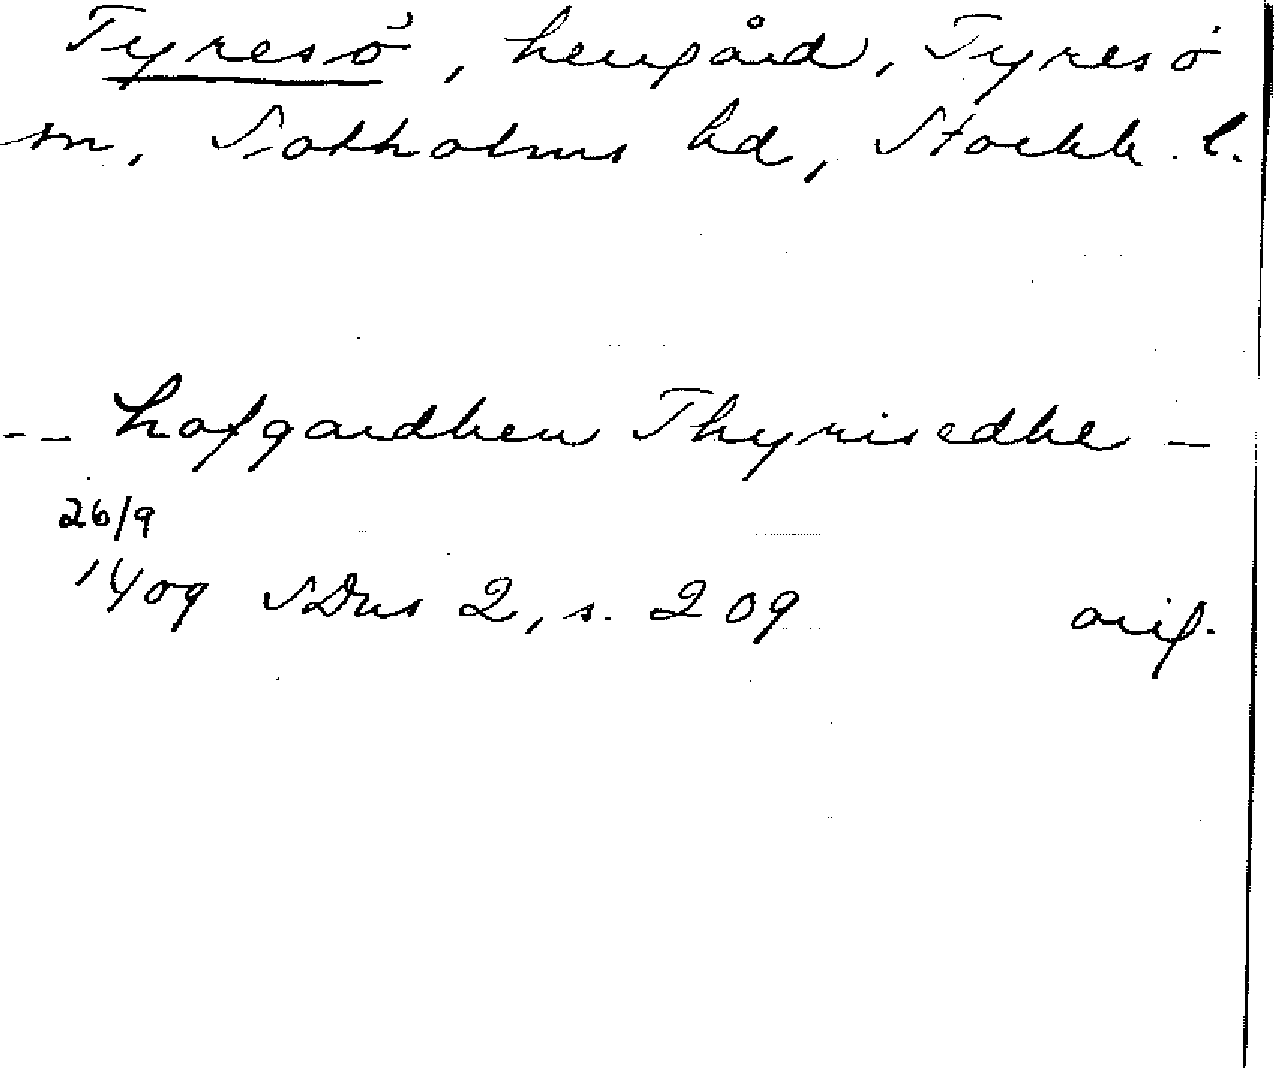 Tyresö, herrgård, Tyresö
sn, Sotholms hd, Stockh. l.
-- hofgardhen Thyrisedhe -
26/9
1409 SDns 2, s. 209 orig.